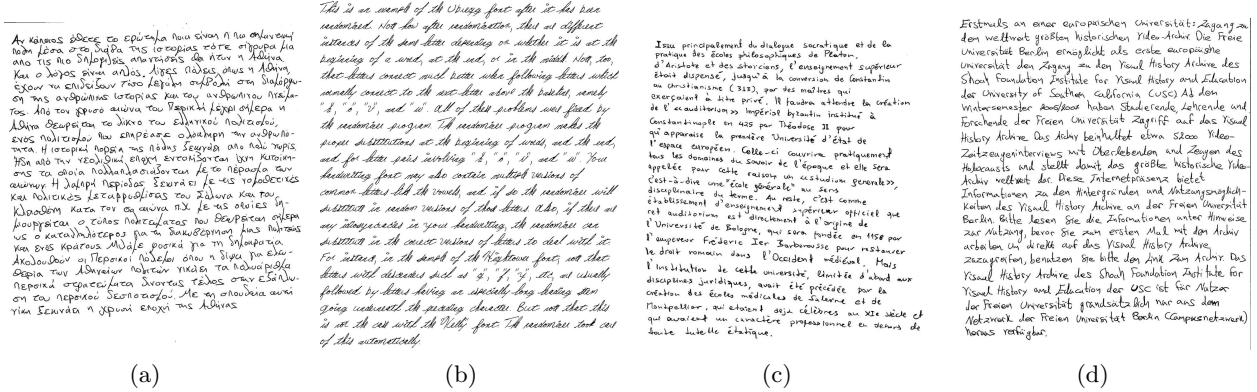 Αν κάποιος έθετε το ερώτημα ποια είναι η πιο σημαντική
πόλη μέσα στο διάβα της ιστορίας τότε σίγουρα μια
από τις πιο δημοφιλείς απαντήσεις θα ήταν η Αθήνα
Και ο λόγος είναι απλός. Λίγες πόλεις όπως η Αθήνα
έχουν να επιδείξουν τόσο μεγάλη συμβολή στη διαμόρφω-
ση της ανθρώπινης ιστορίας και του ανθρώπινου πνεύμα-
τος. Από τον χρυσό αιώνα του Περικλή μέχρι σήμερα η
Αθήνα θεωρείται το λίκνο του ελληνικού πολιτισμού,
ενός πολιτισμού που επηρέασε ολόκληρη την ανθρωπό-
τητα. Η ιστορική πορεία της πόλης ξεκινάει από πολύ νωρίς.
Ήδη από την νεολιθική εποχή εντοπίζονται ίχνη κατοίκη-
σης τα οποία πολλαπλασιάζονται με το πέρασμα των
αιώνων. Η λαμπρή περίοδος ξεκινάει με τις νομοθετικές
και πολιτικές μεταρρυθμίσεις του Σόλωνα και του
Κλεισθένη κατά τον 6ο αιώνα π.Χ. με τις οποίες δη-
μιουργείται ο τύπος πολιτεύματος που θεωρείται σήμερα
ως ο καταλληλότερος για τη διακυβέρνηση μιας πολιτείας
και ενός κράτους. Μιλάμε φυσικά για τη δημοκρατία
Ακολουθούν οι Περσικοί πόλεμοι όπου η δίψα για ελευ-
θερία των Αθηναίων πολιτών νικάει τα πολυάριθμα
περσικά στρατεύματα δίνοντας τέλος στην εξάπλω-
ση του περσικού δεσποτισμού. Με τη σπουδαία αυτή
νίκη ξεκινάει η χρυσή εποχή της Αθήνας
(a)
This is an example of the Uprezg font after it has been
randomized. Note how after randomization, there are different
instances of the same letter depending on whether it is at the
beginning of a word, at the end, or in the middle. Note, too,
that letters connect much better when following letters which
normally connect to the next letter above the baseline, namely
"b", "o", "v", and "w". All of these problems were fixed by
the randomizer program. The randomizer program makes the
proper substitutions at the beginning of words, and the end,
and for letter pairs involving "b", "o", "v", and "w". Your
handwriting font may also contain multiple versions of
common letters like the vowels, and if so the randomizer will
substitute in random versions of those letters. Also, if there are
any idiosyncracies in your handwriting, the randomizer can
substitute in the correct versions of letters to deal with it.
For instance, in the sample of the Hightower font, note that
letters with descenders such as "g", "j", "y", etc, are usually
followed by letters having an especially long leading stem
going underneath the preceding character. But note that this
is not the case with the Neilly font. The randomizer took care
of this automatically.
(b)
Issu principalement du dialogue socratique et de la
pratique des écoles philosophiques de Platon,
d'Aristote et des stoïciens, l'enseignement supérieur
était dispensé, jusqu'à la conversion de Constantin
au christianisme (313), par des maîtres qui
exerçaient à titre privé. Il faudra attendre la création
de l'«auditorium» impérial byzantin institué à
Constantinople en 425 par Théodose II pour
qu'apparaisse la première Université d'état de
l'espace européen. Celle-ci couvrire pratiquement
tous les domaines du savoir de l'époque et elle sera
appelée pour cette raison un «studium generale»,
c'est-à-dire une "école générale" au sens
disciplinaire du terme. Au reste, c'est comme
établissement d'enseignement supérieur officiel que
cet auditorium est directement à l'origine de
l'Université de Bologne, qui sera fondée en 1158 par
l'empereur Fréderic Ier Barberousse pour restaurer
le droit romain dans l'Occident médiéval. Mais
l'institution de cette université, limitée d'abord aux
disciplines juridiques, avait été précédée par la
création des écoles médicales de Salerne et de
Montpellier, qui étaient déjà célèbres au XIe siècle et
qui avaient un caractère professionnel en dehors de
toute tutelle étatique.
(c)
Erstmals an einer europäischen Universität: Zugang zu
dem weltweit größten historischen Video-Archiv Die Freie
Universität Berlin ermöglicht als erste europäische
Universität den Zugang zu den Visual History Archive des
Shoah Foundation Institute for Visual History and Education
der University of Southern California (USC) Ab dem
Wintersemester 2006/2007 haben Studierende, Lehrende und
Forschende der Freien Universität Zugriff auf das Visual
History Archive. Das Archiv beinhaltet etwa 52000 Video-
Zeitzeugeninterviews mit Überlebenden und Zeugen des
Holocausts und stellt damit das größte historische Video-
Archiv weltweit dar. Diese Internetpräsenz bietet
Informationen zu den Hintergründen und Nutzungsmöglich-
keiten des Visual History Archive an der Freien Universität
Berlin. Bitte lesen Sie die Informationen unter Hinweise
zur Nutzung, bevor Sie zum ersten Mal mit den Archiv
arbeiten. Um direkt auf das Visual History Archive
zuzugreifen, benutzen Sie bitte den Link zum Archiv. Das
Visual History Archive des Shoah Foundation Institute for
Visual History and Education der USC ist für Nutzer
der Freien Universität grundsätzlich nur aus dem
Netzwerk der Freien Universität Berlin (Campusnetzwerk)
heraus verfügbar.
(d)